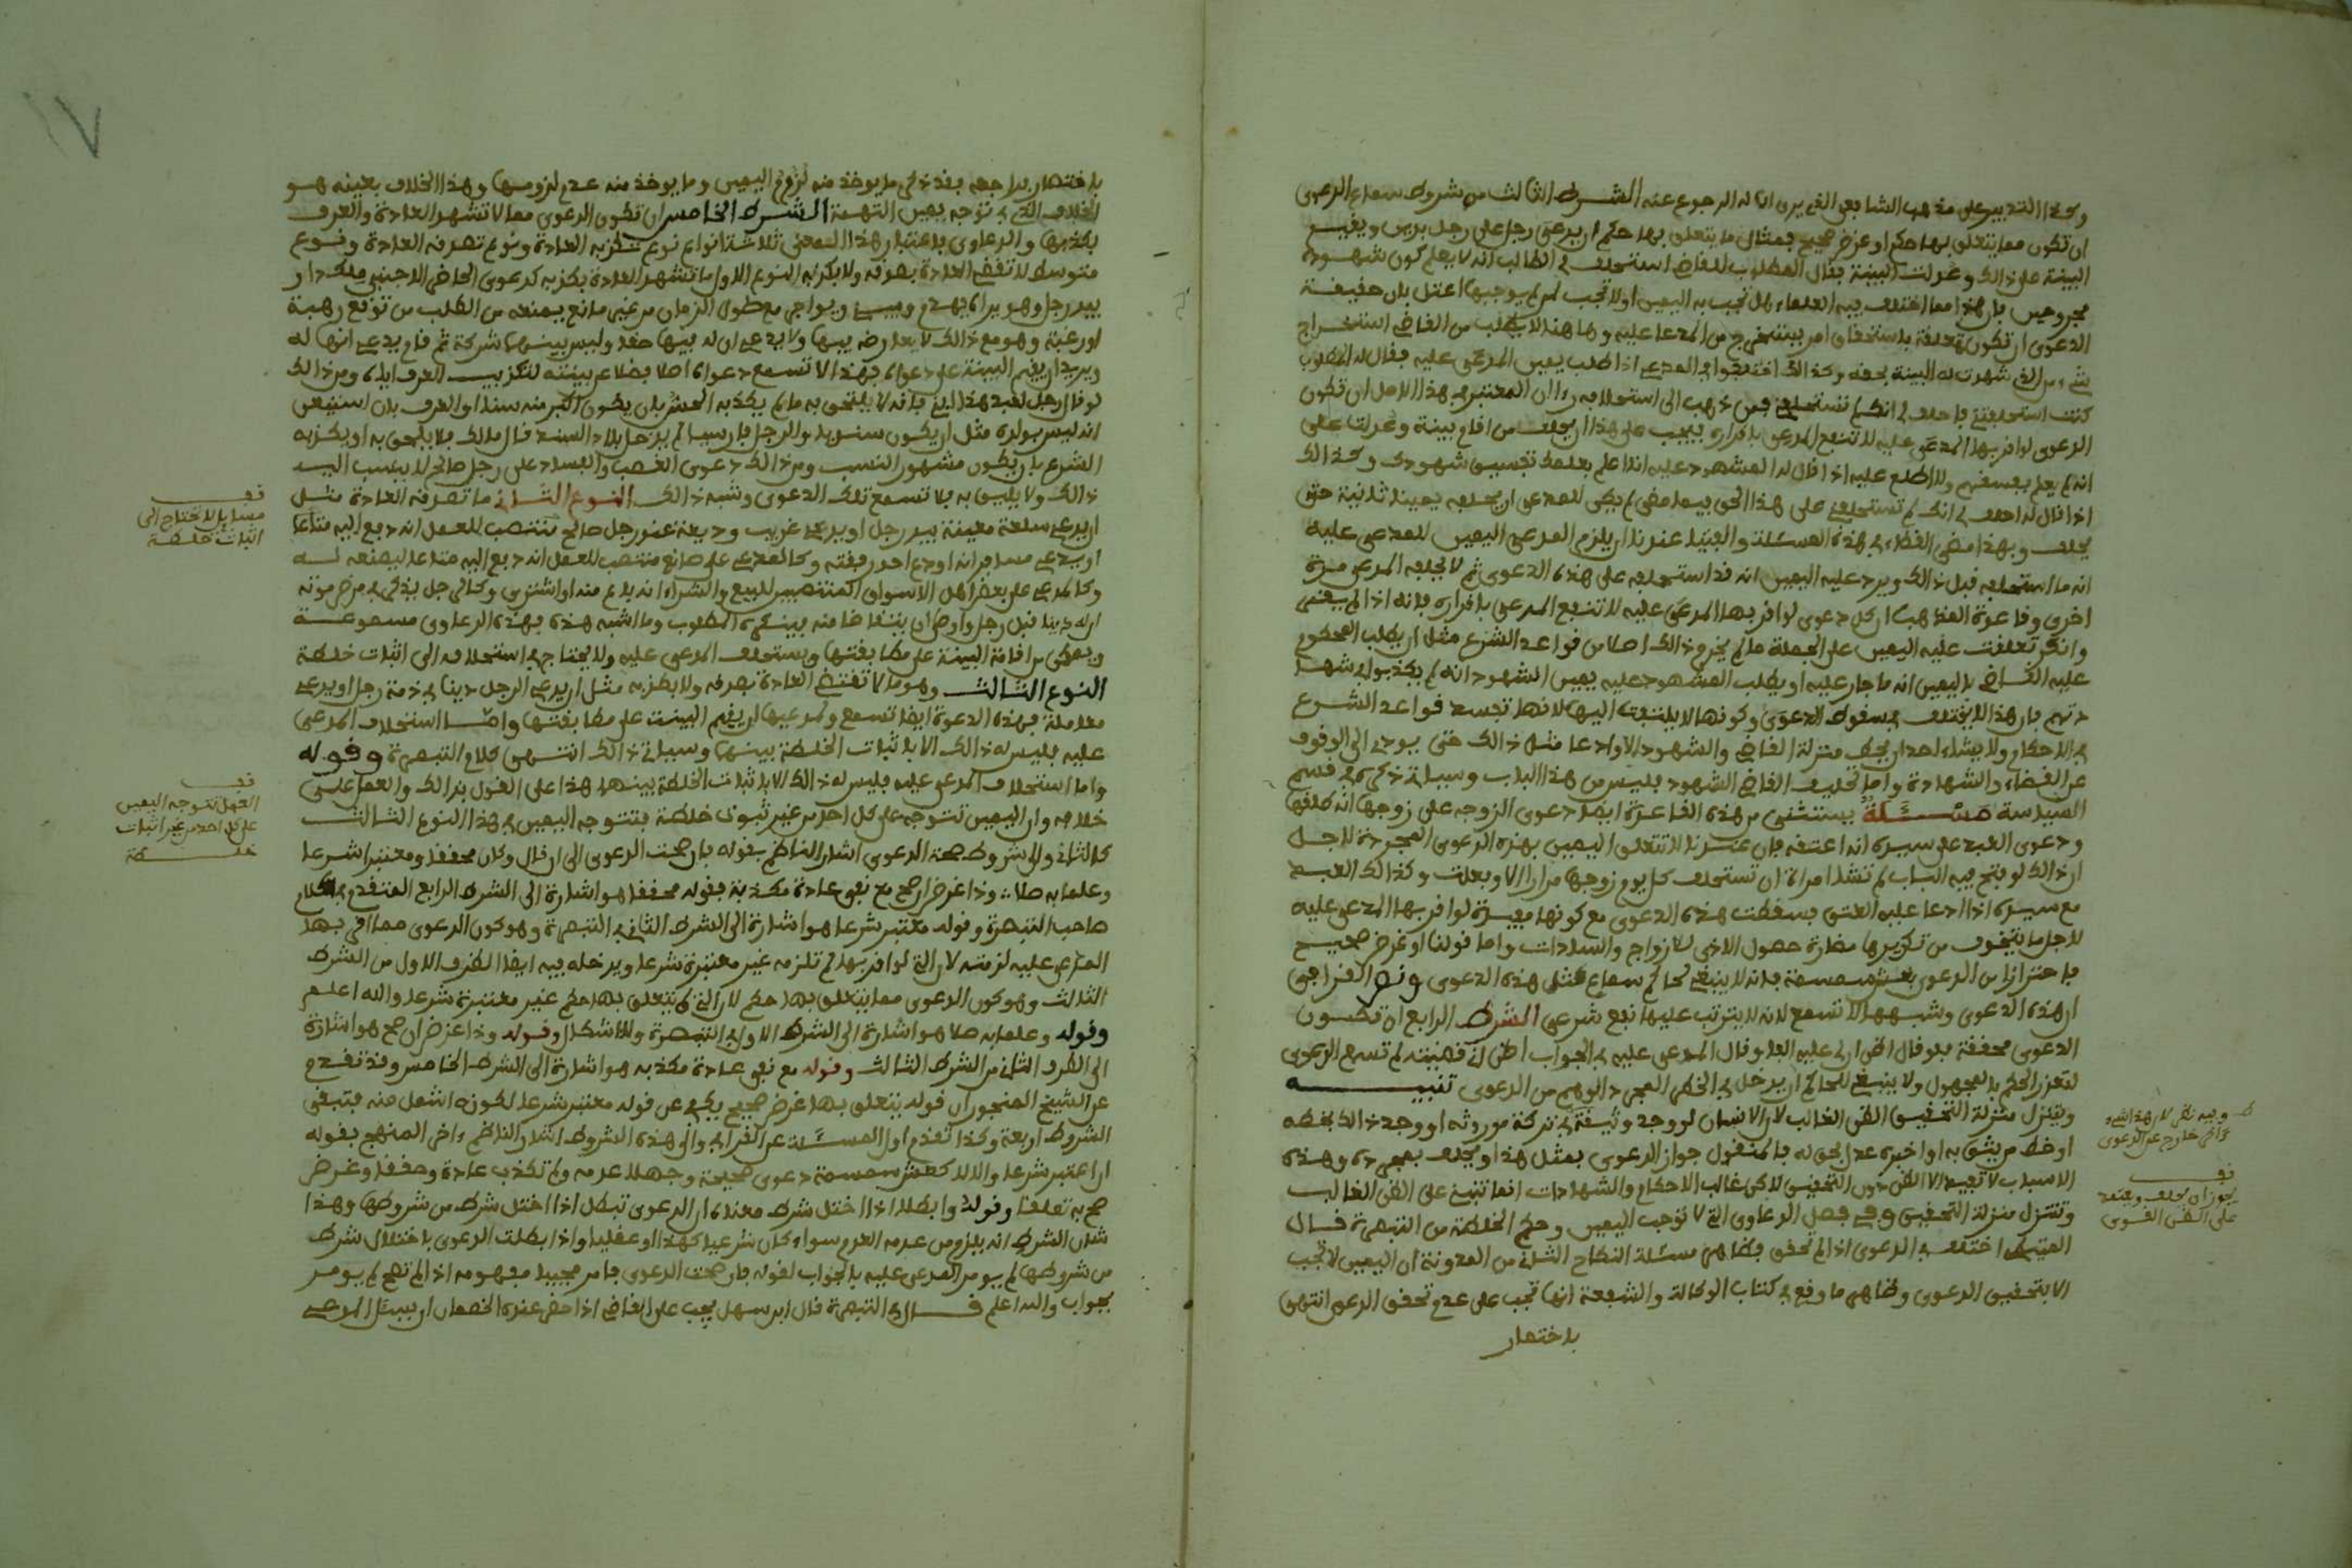 وكذا التدبير على مذهب الشافعي الذي يرى ان له الرجوع عنه الشرط الثالث من شروط سماع الدعوى
ان تكون مما يتعلق بها حكم او غرض صحيح فمثال ما يتعلق بها حكم ان يدعي رجل على رجل بدين ويقيم
البينة على ذالك وعدلت البينة فقال المطلوب للقاضي استحلف لي الطالب انه لا يعلم كون شهوده
مجروحين فان هذا مما اختلف فيه العلماء هل تجب به اليمين او لا تجب فمن لم يوجبها اعتل بان حقيقة
الدعوى ان تكون متعلقة باستحقاق امر يستخرج من المدعا عليه وها هنا لا يطلب من القاضي استخراج
شيء من الذي شهدت له البينة بحقه وكذالك اختلفوا في المدعي اذا طلب يمين المدعى عليه فقال له المطلوب
كنت استحلفتني فاحلف لي انك لم تستحلفني فمن ذهب الى استحلافه رءا ان المعتبر في هذا الاصل ان تكون
الدعوى لو اقر بها المدعى عليه لانتفع المدعي باقراره فيجب على هذا ان يحلف من اقام بينة وعدلت على
انه لم يعلم بفسقهم ولا اطلع عليه اذا قال له المشهود عليه انا اعلم بعلمك تفسيق شهودك وكذالك
اذا قال له احلف لي انك لم تستحلفني على هذا الحق فيما مضى لم يكن للمدعي ان يحلفه يمينا ثانية حتى
يحلف وبهذا مضى القضاء في هذه المسئلة والفتيا عندنا ان يلزم المدعي اليمين للمدعى عليه
انه ما استحلفه قبل ذالك ويرد عليه اليمين انه قد استحلفه على هذه الدعوى ثم لا يحلفه المدعي مرة
اخرى وقاعدة المذهب ان كل دعوى لو اقر بها المدعى عليه لانتفع المدعي باقراره فانه اذا لم يقر
وانكر تعلقت عليه اليمين على الجملة ما لم يخرج ذالك اصلا من قواعد الشرع مثل ان يطلب المحكوم
عليه القاضي باليمين انه ما جار عليه او يطلب المشهود عليه يمين الشهود انه لم يكذبوا في شها
دتهم فان هذا لا يختلف في سقوط الدعوى وكونها لا يلتفت اليها لانها تفسد قواعد الشرع
في الاحكام ولا يشاء احد ان يحط منزلة القاضي والشهود الا وادعا مثل ذالك حتى يودي الى الوقوف
عن القضاء والشهادة واما تحليف القاضي الشهود فليس من هذا الباب وسياتي ذكره في قسم
السياسة مسئلة يستثنى من هذه القاعدة ايضا دعوى الزوجة على زوجها انه طلقها
ودعوى العبد على سيده انه اعتقه فان عندنا لا تتعلق اليمين بهذه الدعوى المجردة لاجل
ان ذالك لو فتح فيه الباب لم تشا امراة ان تستحلف كل يوم زوجها مرارا الا وفعلت وكذالك العبد
مع سيده اذا ادعا عليه العتق فسقطت هذه الدعوى مع كونها مفيدة لو اقر بها المدعى عليه
لاجل ما يتخوف من تكريرها مضارة حصول الاذى للازواج والسادات واما قولنا او غرض صحيح
فاحترازا من الدعوى بعشر سمسمة فانه لا ينبغي لحاكم سماع مثل هذه الدعوى ونص القرافي
ان هذه الدعوى وشبهها لا تسمع لانه لا يترتب عليها نفع شرعي الشرط الرابع ان تكون
الدعوى محققة فلو قال اظن ان لي عليه الفا وقال المدعى عليه في الجواب اظن اني قضيته لم تسمع الدعوى
لتعذر الحكم بالمجهول ولا ينبغي للحاكم ان يدخل في الخطر المجرد الوهم من الدعوى تنبيه
وينزل منزلة التحقيق الظن الغالب لان الانسان لو وجد وثيقة في تركة موروثه او وجد ذالك بخطه
او خط من يثق به او اخبره عدل بحق له فالمنقول جواز الدعوى بمثل هذا ويحلف بمجرده وهذه
الاسباب لا تفيد الا الظن دون التحقيق لكن غالب الاحكام والشهادات انما تبنى على الظن الغالب
وتتنزل منزلة التحقيق وفي فصل الدعاوى التي لا توجب اليمين وحكم الخلطة من التبصرة قال
المتيطي اختلف في الدعوى اذا لم تحقق فظاهر مسئلة النكاح الثاني من المدونة ان اليمين لا تجب
الا بتحقيق الدعوى وظاهر ما وقع في كتاب الوكالة والشفعة انها تجب على عدم تحقق الدعوى انتهى
باختصار
قف
يجوز ان يحلف ويعتمد
على الظن القوي
باختصار فراجعه فقد ذكر ما يوخذ منه لزوم اليمين وما يوخذ منه عدم لزومها وهذا الخلاف بعينه هو
الخلاف الذي في توجه يمين التهمة الشرط الخامس ان تكون الدعوى مما لا تشهد العادة والعرف
بكذبها والدعاوى باعتبار هذا المعنى ثلاثة انواع نوع تكذبه العادة ونوع تصدقه العادة ونوع
متوسط لا تقضي العادة بصدقه ولا بكذبه النوع الاول ما تشهد العادة بكذبه كدعوى الحاضر الاجنبي ملك دار
بيد رجل وهو يراه يهدم ويبني ويواجر مع طول الزمان من غير مانع يمنعه من الطلب من توقع رهبة
او رغبة وهو مع ذالك لا يعارضه فيها ولا يدعي ان له فيها حقا وليس بينهما شركة ثم قام يدعي انها له
ويريد ان يقيم البينة على دعواه فهذا لا تسمع دعواه اصلا فضلا عن بينته لتكذيب العرف اياه ومن ذالك
لو قال رجل لعبد هذا ابني فانه لا يلتحق به ما لم يكذبه الحس بان يكون اكبر منه سنا او العرف بان استيقن
انه ليس بولده مثل ان يكون سنديا والرجل فارسيا لم يدخل بلاد السند قال مالك فلا يلحق به او يكذبه
الشرع بان يكون مشهور النسب ومن ذالك دعوى الغصب والفساد على رجل صالح لا ينسب اليه
ذالك ولا يليق به فلا تسمع تلك الدعوى وشبه ذالك النوع الثاني ما تصدقه العادة مثل
ان يدعي سلعة معينة بيد رجل او يدعي غريب وديعة عند رجل صالح
او يدعي مسافر انه اودع احد رفقته وكالمدعي على صانع منتصب للعمل انه دفع اليه متاعا ليصنعه له
وكالمدعي على بعض اهل الاسواق المنتصبين للبيع والشراء انه باع منه او اشترى وكالرجل يذكر في مرض موته
ان له دينا قبل رجل واوصى ان يتقاضا منه فينكره المطلوب وما اشبه هذه فهذه الدعاوى مسموعة
ويمكن من اقامة البينة على مطابقتها ويستحلف المدعى عليه ولا يحتاج في استحلافه الى اثبات خلطة
النوع الثالث وهو ما لا تقتضي العادة بصدقه ولا بكذبه مثل ان يدعي الرجل دينا في ذمة رجل او يدعي
معاملة فهذه الدعوة ايضا تسمع ولمدعيها ان يقيم البينة على مطابقتها واما استحلاف المدعى
عليه فليس له ذالك الا باثبات الخلطة بينهما وسياتي ذالك انتهى كلام التبصرة وقوله
واما استحلاف المدعى عليه فليس له ذالك الا باثبات الخلطة بينهما هذا على القول بذالك والعمل على
خلافه وان اليمين تتوجه على كل احد من غير ثبوت خلطة فتتوجه اليمين في هذا النوع الثالث
كالثاني والى شروط صحة الدعوى اشار الناظم بقوله فان صحت الدعوى الى ان قال وكان محققا ومعتبرا شرعا
وعلما به صلا وذا غرض ان صح مع نفي عادة مكذبة فقوله محققا هو اشارة الى الشرط الرابع المتقدم في كلام
صاحب التبصرة وقوله معتبر شرعا هو اشارة الى الشرط الثاني في التبصرة وهو كون الدعوى مما اقر بها
المدعى عليه لزمته لان التي لو اقر بها لم تلزمه غير معتبرة شرعا ويدخله فيه ايضا الطرف الاول من الشرط
الثالث وهو كون الدعوى مما يتعلق بها حكم لان التي لم يتعلق بها حكم غير معتبرة شرعا والله اعلم
وقوله وعلما به صلا هو اشارة الى الشرط الاول في التبصرة ولا اشكال وقوله وذا غرض ان صح هو اشارة
الى الطرف الثاني من الشرط الثالث وقوله مع نفي عادة مكذبه هو اشارة الى الشرط الخامس وقد تقدم
عن الشيخ المنجور ان قوله يتعلق بها غرض صحيح يكفي عن قوله معتبر شرعا لكونه اشمل منه فتبقى
الشروط اربعة وكذا تقدم اول المسئلة عن القرافي والى هذه الشروط اشار الناظم ءاخر المنهج بقوله
ان اعتبر شرعا والا لا كعشر سمسمة دعوى صحيحة وجهلا عدمه ولم تكذب عادة وحققا وغرض
صح به تعلقا وقوله وابطلا اذا اختل شرط معناه ان الدعوى تبطل اذا اختل شرط من شروطها وهذا
شان الشرط انه يلزم من عدمه العدم سواء كان شرعيا كهذا او عقليا واذا بطلت الدعوى باختلال شرط
من شروطها لم يومر المدعى عليه بالجواب لقوله فان صحت الدعوى فامر مجيبا مفهومه اذا لم تصح لم يومر
بجواب والله اعلم قال في التبصرة قال ابن سهل يجب على القاضي اذا حضر عنده الخصمان ان يسئل المدعي
قف
مسايل لا تحتاج الى
اثبات خلطة
قف
العمل تتوجه اليمين
على كل احد من غير اثبات
خلطة
١٧